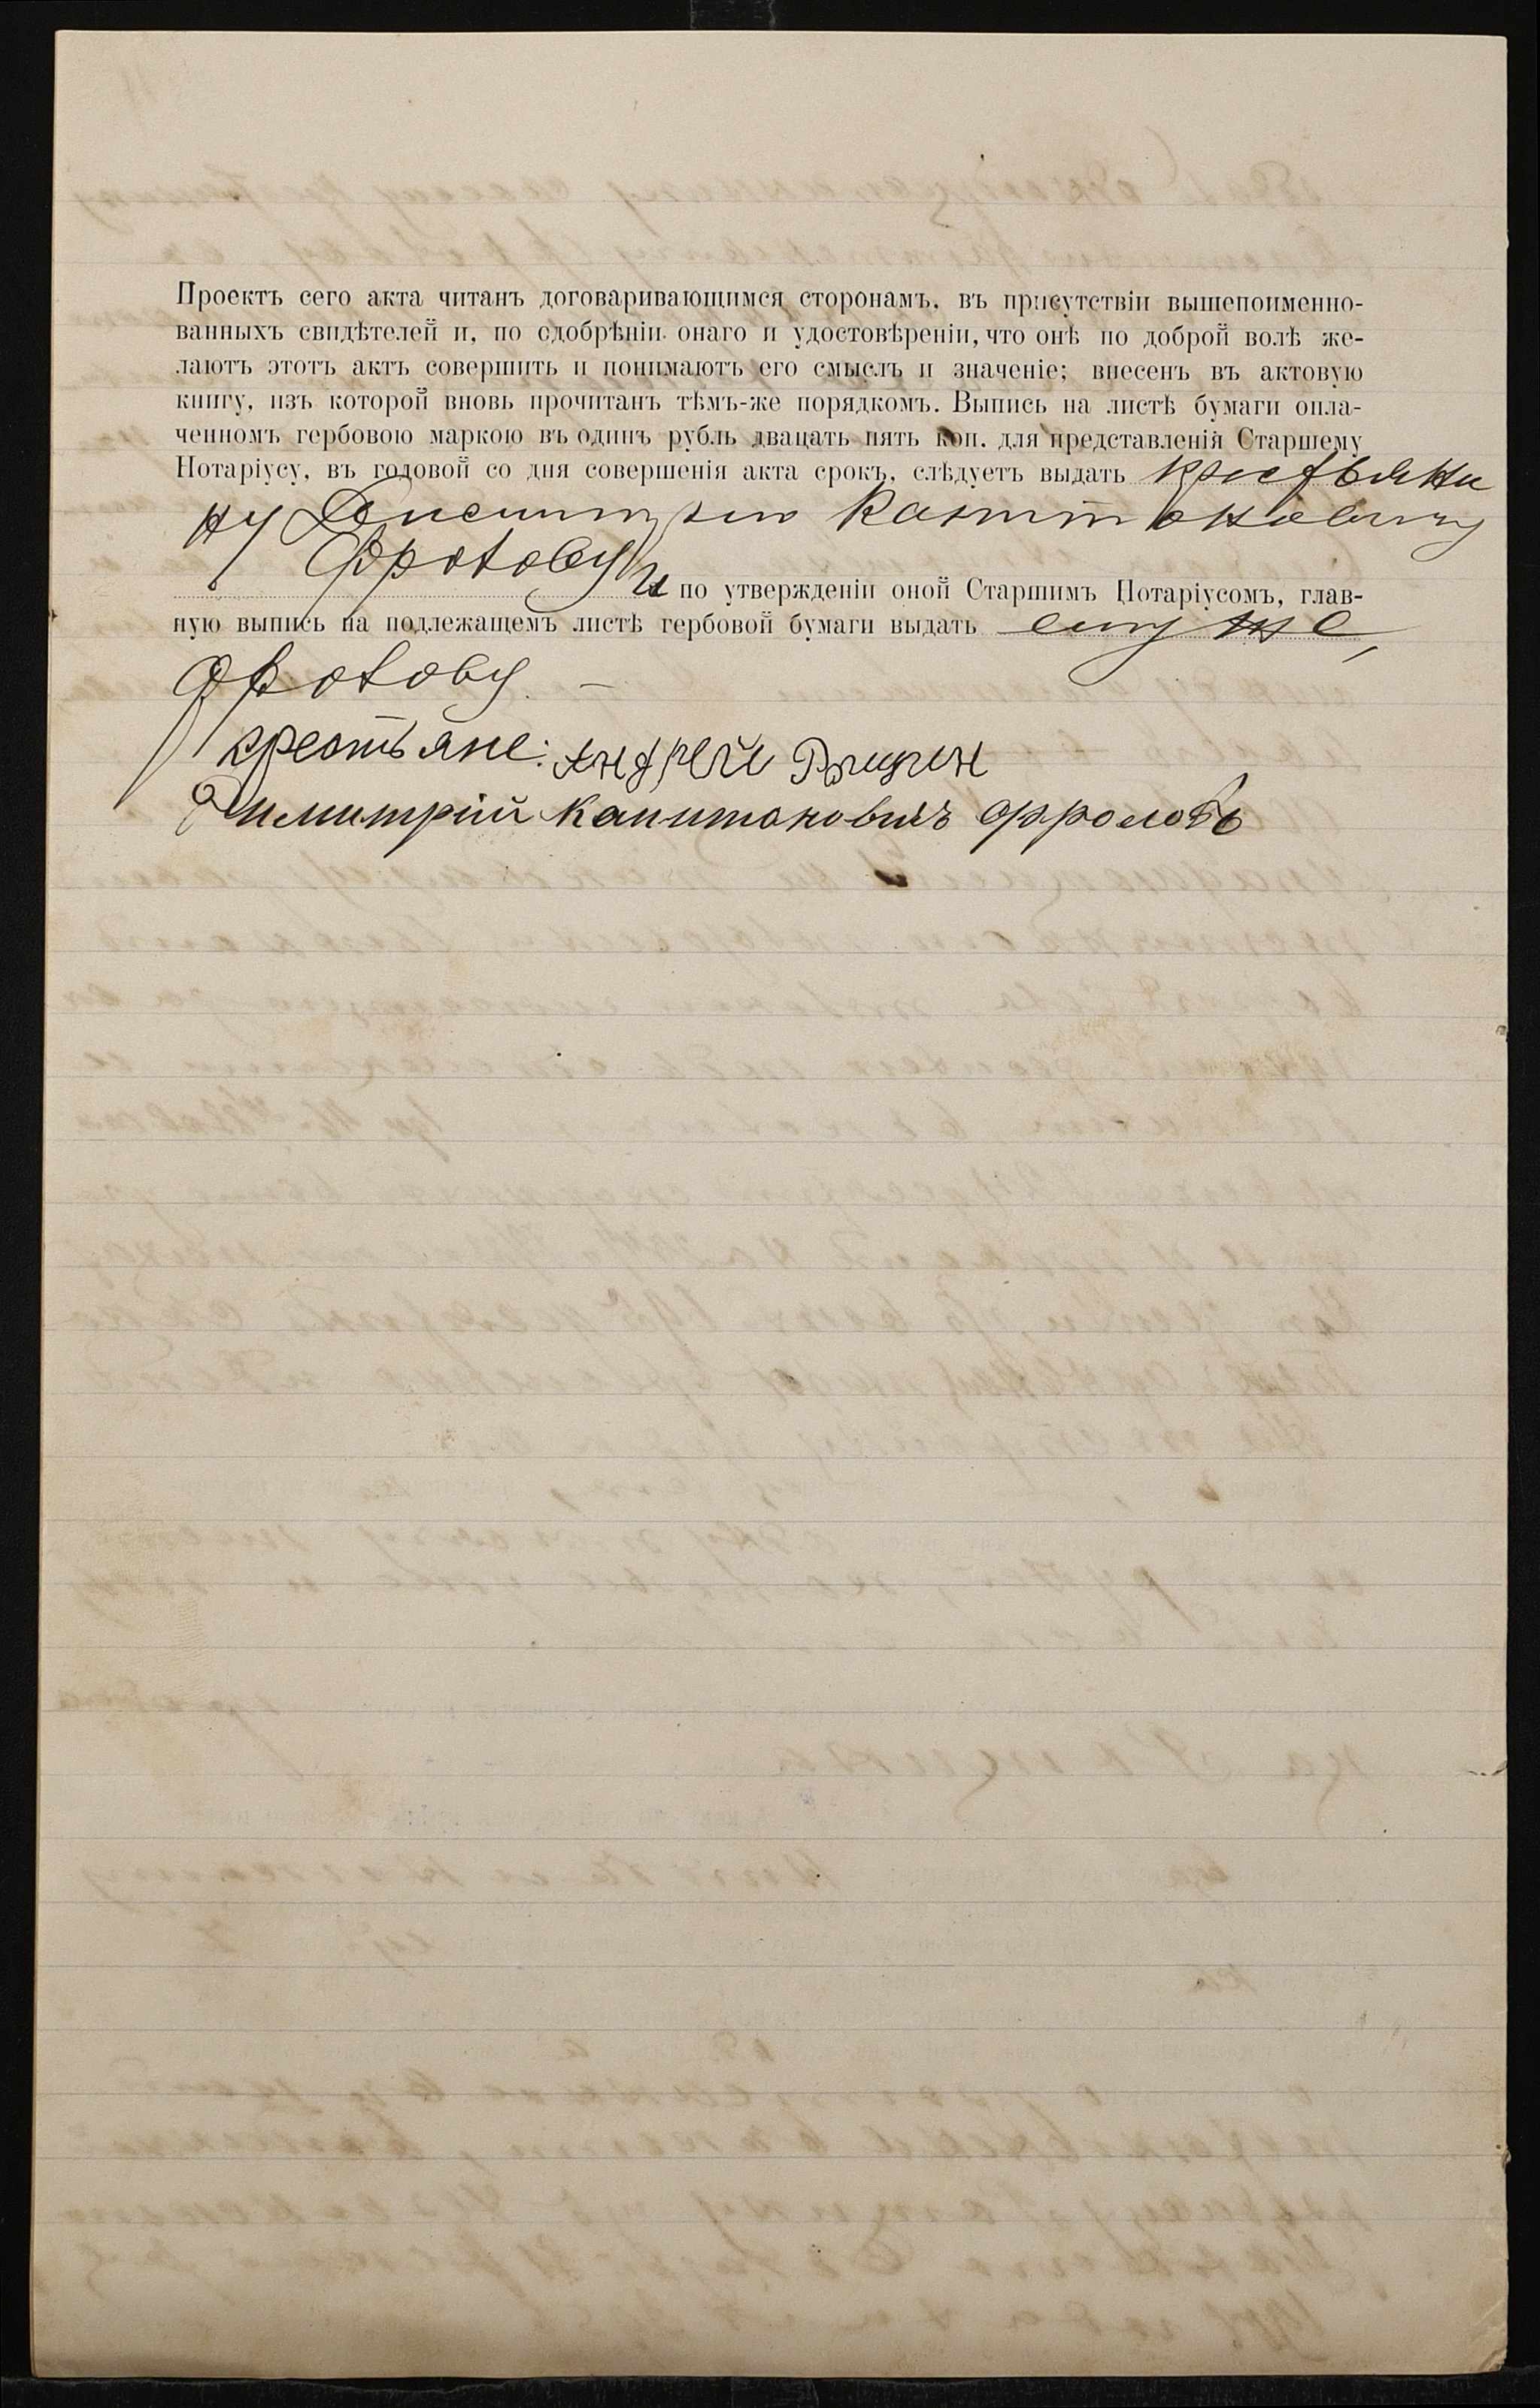 Проектъ сего акта читанъ договаривающимся сторонамъ, въ присутствіи вышепоименно-
ванныхъ свидѣтелей и, по сдобрѣніи онаго и удостовѣреніи, что онѣ по доброй волѣ же-
лаютъ этотъ актъ совершить и понимаютъ его смыслъ и значеніе; внесенъ въ актовую
книгу, изъ которой вновь прочитанъ тѣмъ-же порядкомъ. Выпись на листѣ бумаги опла-
ченномъ гербовою маркою въ одинъ рубль двацать пять коп. для представленія Старшему
Нотаріусу, въ годовой со дня совершенія акта срокъ, слѣдуетъ выдать крестьяни
ну Димитрію Капитоновичу
Фролову и по утвержденіи оной Старшимъ Нотаріусомъ, глав-
ную выпись на подлежащемъ листѣ гербовой бумаги выдать ему же,
Фролову. —
крестьяне: Андрей
Димитрій Капитоновичъ Фроловъ